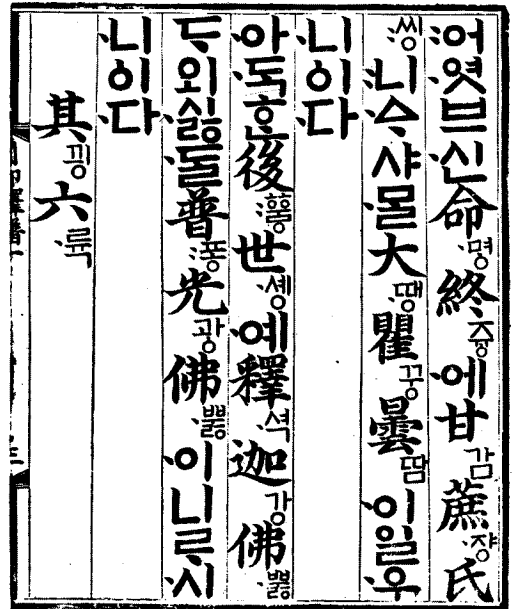 어엿브신命명終즁에甘감蔗쟝氏
씽니ᅀᅳ샤ᄆᆞᆯ大땡瞿꿍曇땀이일우
니이다
아ᄃᆞᆨᄒᆞᆫ後ᅘᅮᇢ世솅예釋셕迦강佛뿌ᇙ
ᄃᆞ외시ᇙᄃᆞᆯ普퐁光광佛뿌ᇙ이니ᄅᆞ시
니이다
其끵六륙